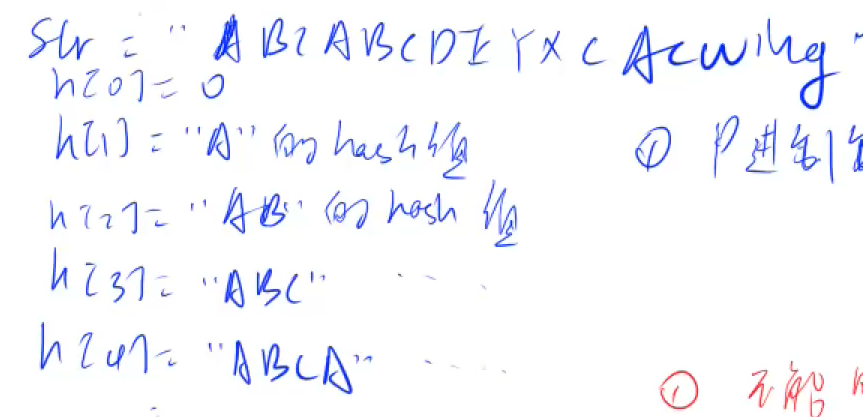 str = "ABCABCDEYXCAcwing"
h[0] = 0
h[1] = "A" 的 hash值
① P进制
h[2] = "AB" 的 hash 值
h[3] = "ABC" ....
h[4] = "ABCA" .....
① 不能